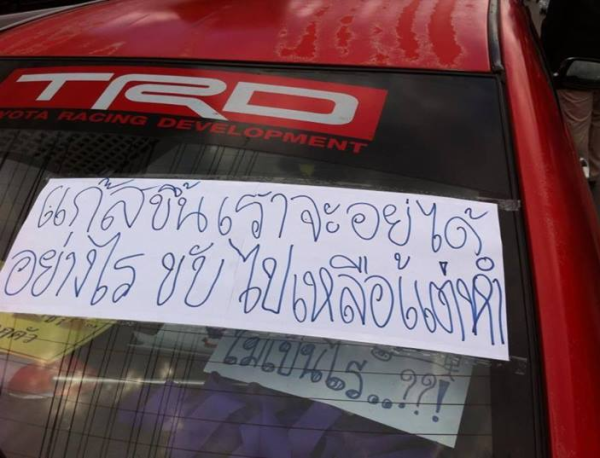 TRD
OYOTA RACING DEVELOPMENT
แก๊สขึ้นเราจะอยู่ได้
อย่างไร ขับไปเหลือแต่หำ
ไม่เป็นไร...??!